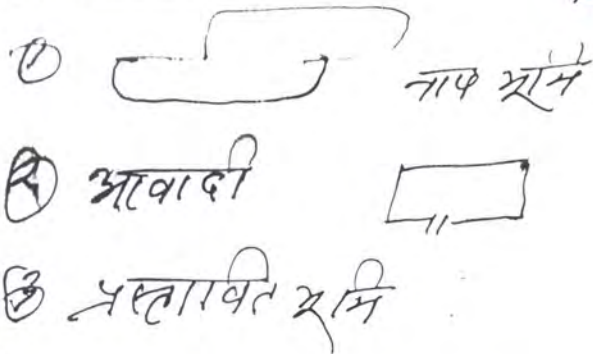 ① नाप भूमि
② आवादी
③ प्रस्तावित भूमि